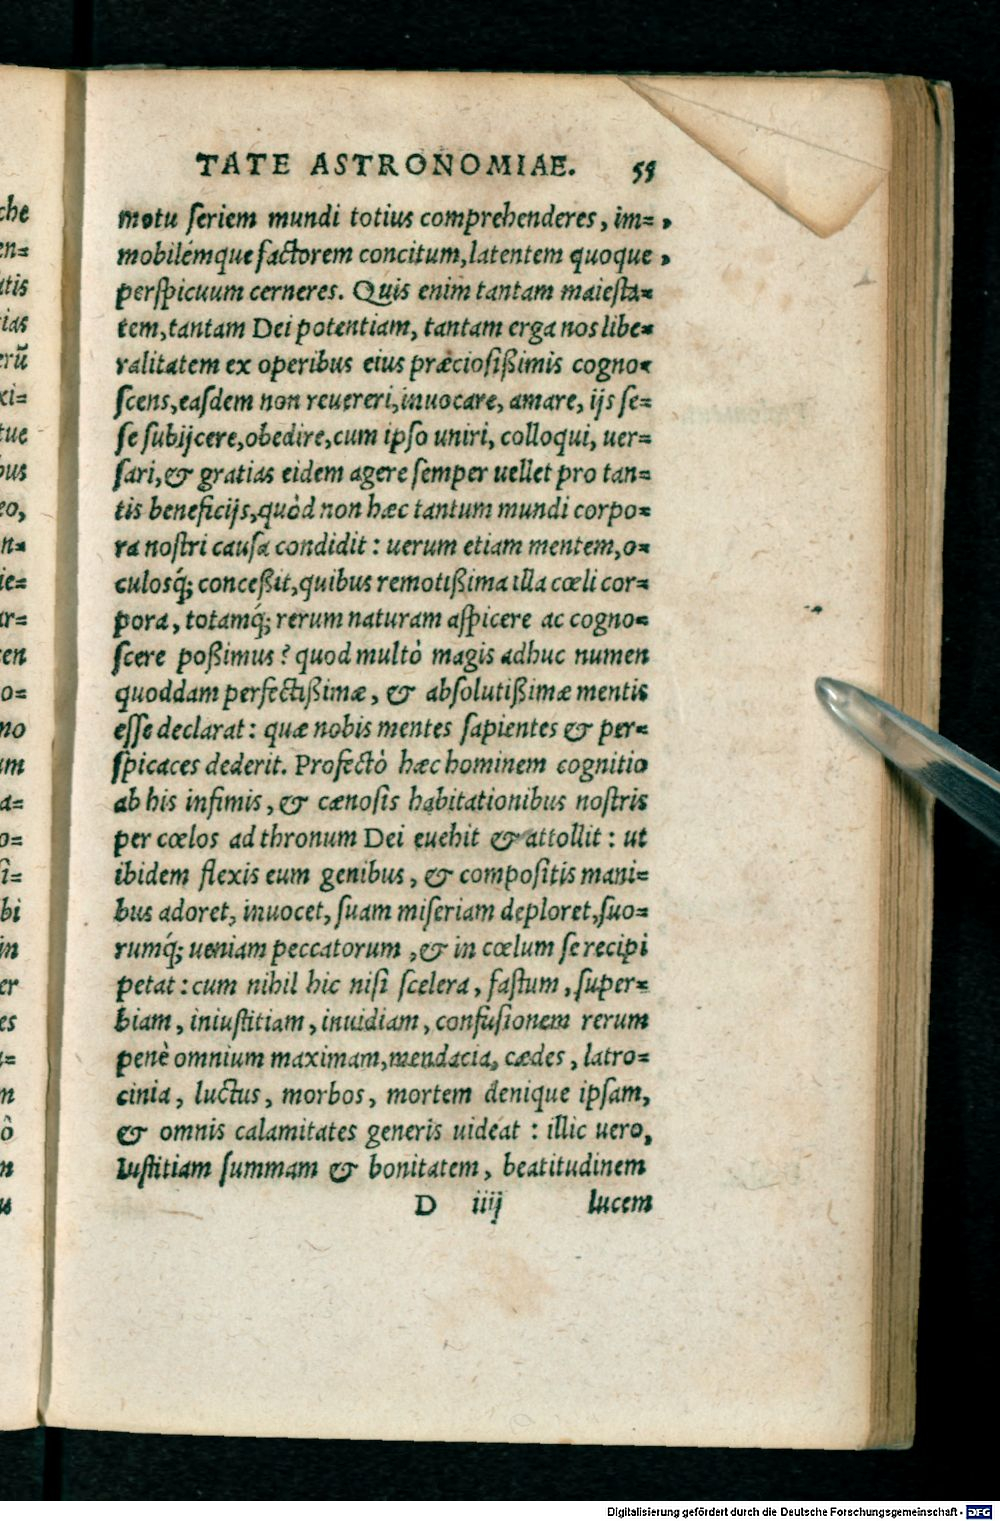 TATE ASTRONOMIAE. 55
motu seriem mundi totius comprehenderes, im= ,
mobilémque factorem concitum, latentem quoque ,
perspicuum cerneres. Quis enim tantam maiesta=
tem, tantam Dei potentiam, tantam erga nos libe=
ralitatem ex operibus eius præciosißimis cogno=
scens, easdem non reuereri, inuocare, amare, ijs se=
se subijcere, obedire, cum ipso uniri, colloqui, uer=
sari, & gratias eidem agere semper uellet pro tan=
tis beneficijs, quòd non hæc tantum mundi corpo=
ra nostri causa condidit : uerum etiam mentem, o=
culosq́; conceßit, quibus remotißima illa cœli cor=
pora, totamq́; rerum naturam aspicere ac cogno=
scere poßimus ? quod multò magis adhuc numen
quoddam perfectißimæ, & absolutißimæ mentis
esse declarat : quæ nobis mentes sapientes & per=
spicaces dederit. Profectò hæc hominem cognitio
ab his infimis, & cænosis habitationibus nostris
per cœlos ad thronum Dei euehit & attollit : ut
ibidem flexis eum genibus, & compositis mani=
bus adoret, inuocet, suam miseriam deploret, suo=
rumq́; ueniam peccatorum, & in cœlum se recipi
petat : cum nihil hic nisi scelera, fastum, super=
biam, iniustitiam, inuidiam, confusionem rerum
penè omnium maximam, mendacia, cædes, latro=
cinia, luctus, morbos, mortem denique ipsam,
& omnis calamitates generis uideat : illic uero,
Iustitiam summam & bonitatem, beatitudinem
D iiij lucem
Digitalisierung gefördert durch die Deutsche Forschungsgemeinschaft - DFG